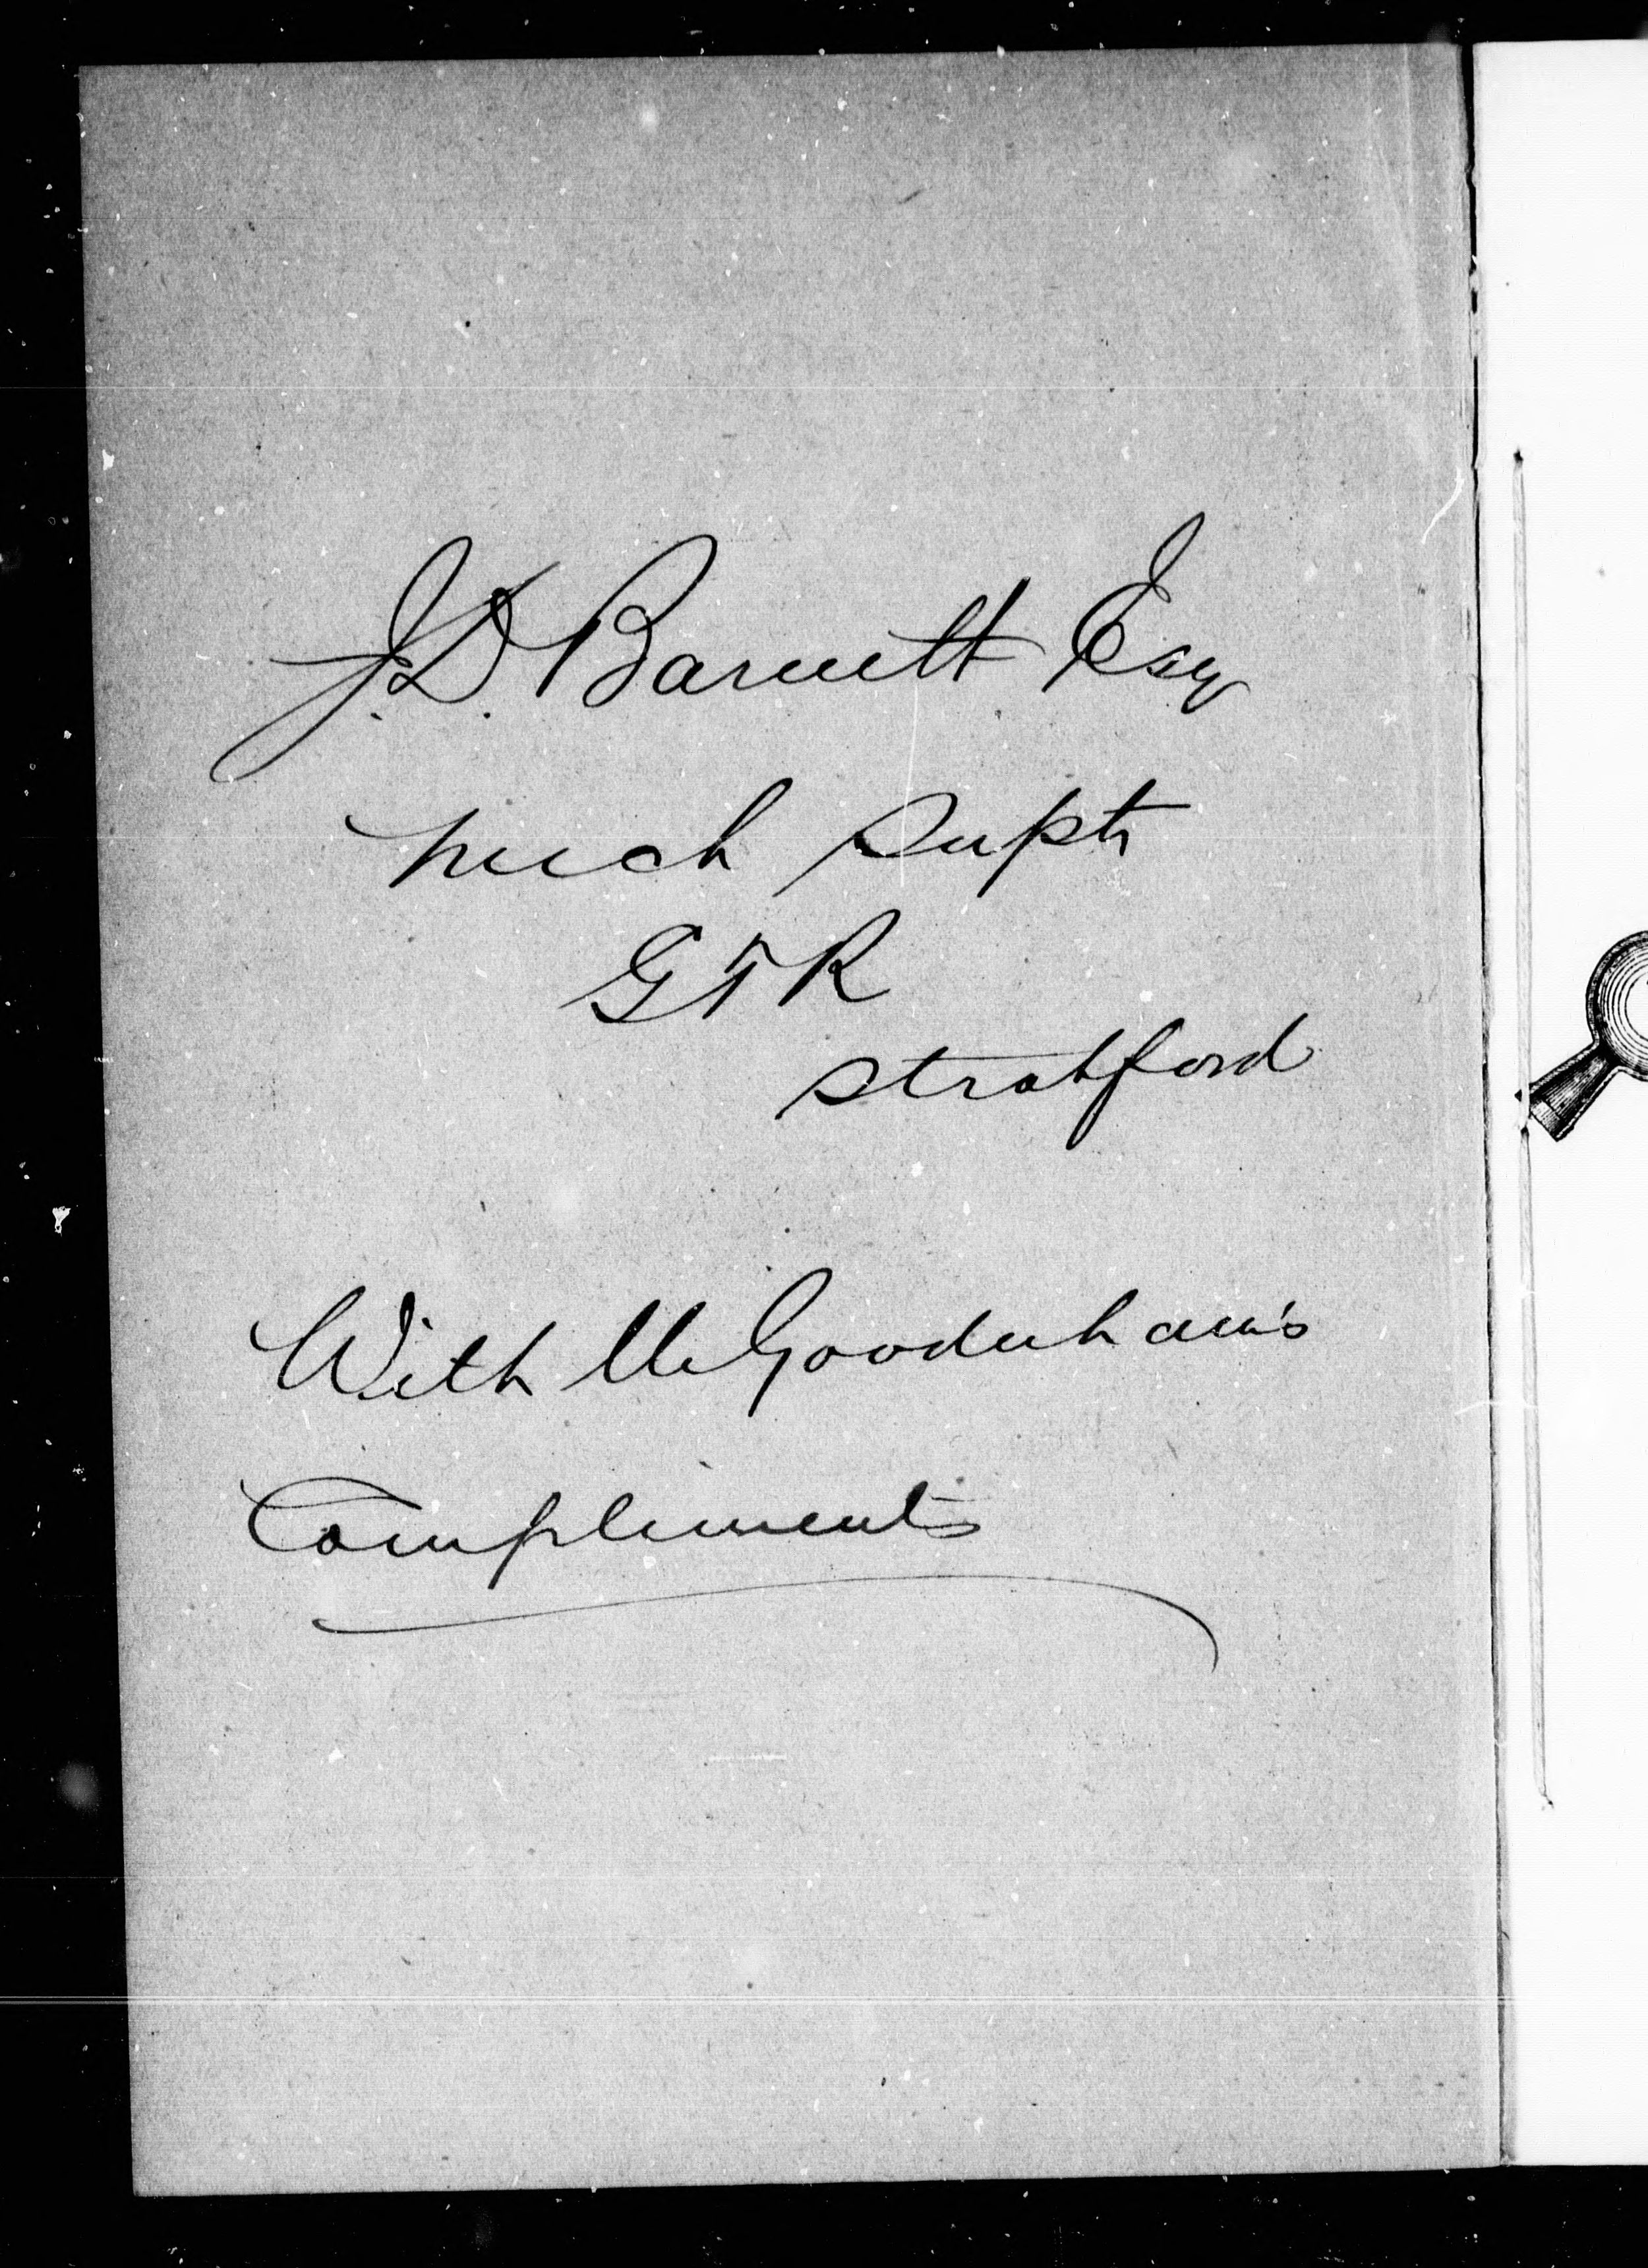 J. D. Barnett Esq
Mech Supt
GTR
Stratford
With Mr Gooderham's
Compliments